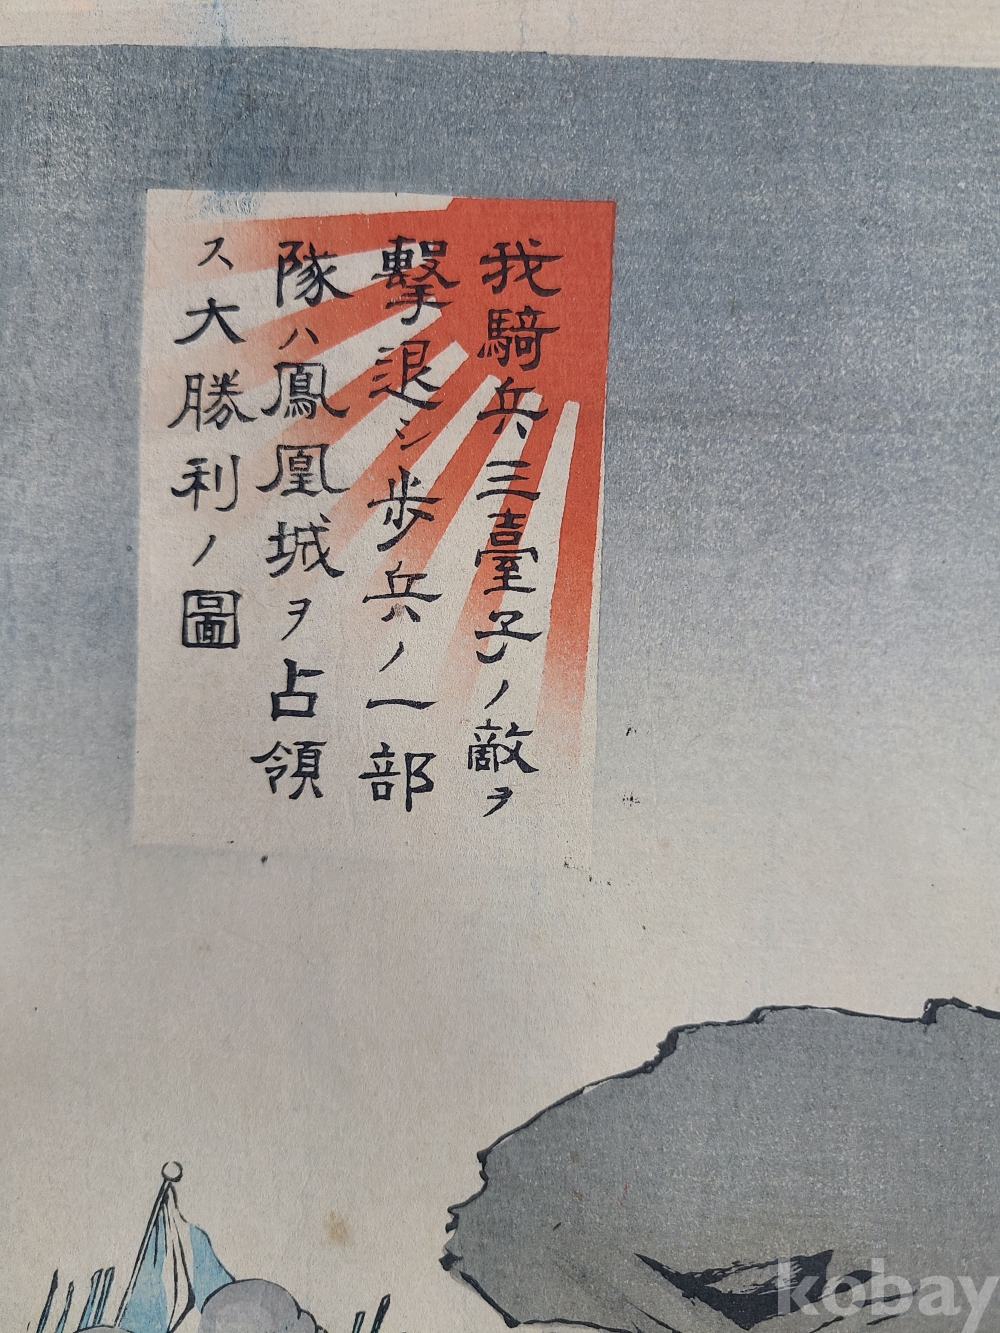 我騎兵ハ三臺子ノ敵ヲ
擊退シ歩兵ノ一部
隊ハ鳳凰城ヲ占領
ス大勝利ノ圖
kobay